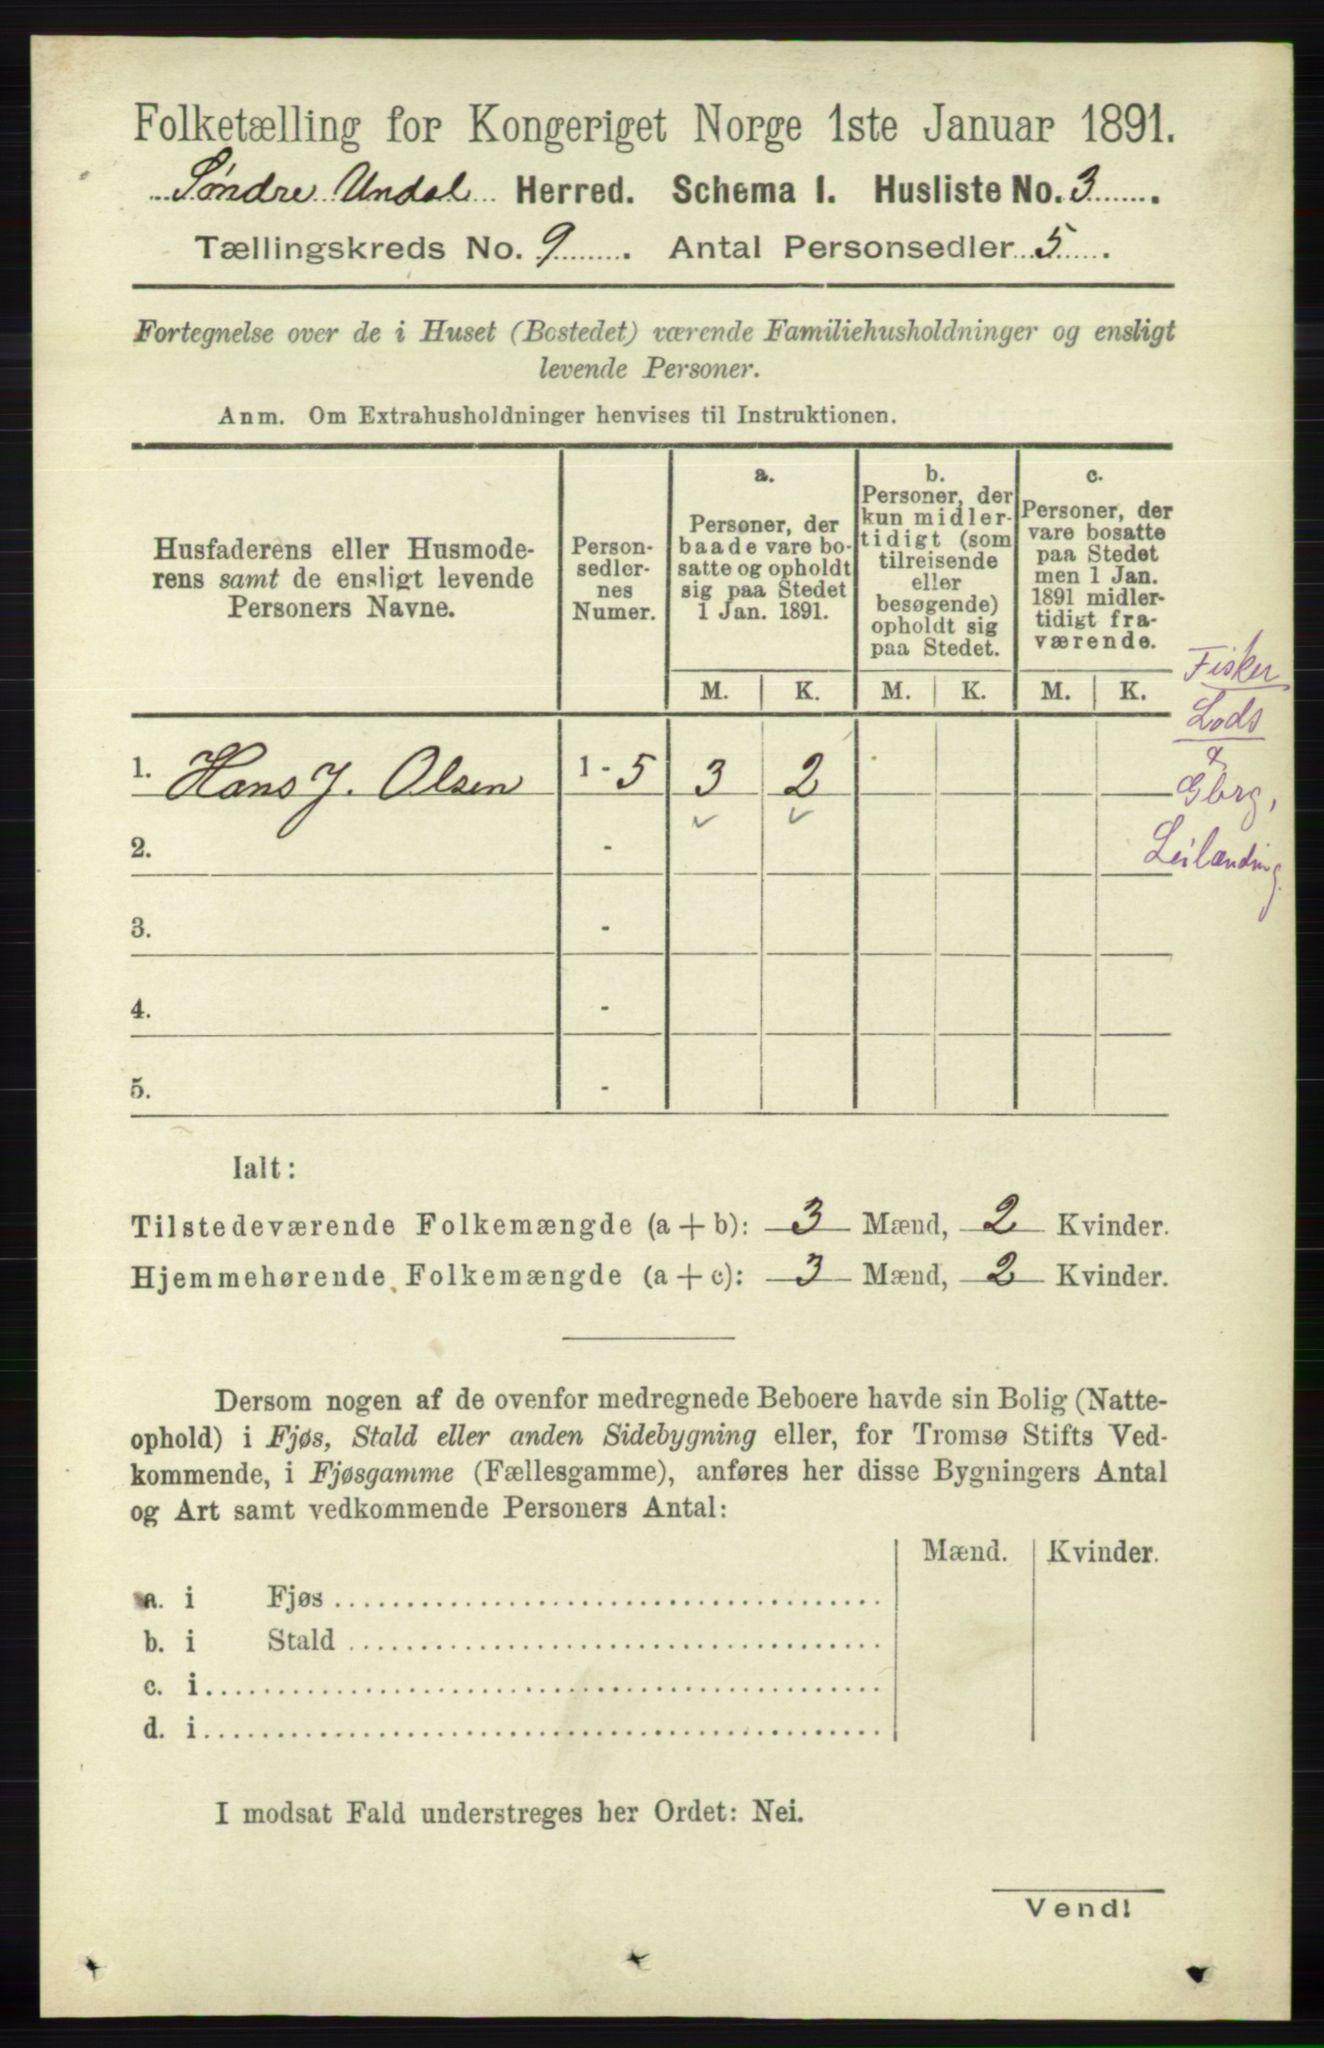 Folketælling for Kongeriget Norge 1ste Januar 1891.
Søndre Undal Herred. Schema I. Husliste No. 3.
Tællingskreds No. 9. Antal Personsedler 5.
Fortegnelse over de i Huset (Bostedet) værende Familiehusholdninger og ensligt
levende Personer.
Anm. Om Extrahusholdninger henvises til Instruktionen.
Husfaderens eller Husmode-
rens samt de ensligt levende
Personers Navne.
Person-
sedler-
nes
Numer.
a.
Personer, der
baade vare bo-
satte og opholdt
sig paa Stedet
1 Jan. 1891.
b.
Personer, der
kun midler-
tidigt (som
tilreisende
eller
besøgende)
opholdt sig
paa Stedet.
c.
Personer, der
vare bosatte
paa Stedet
men 1 Jan.
1891 midler-
tidigt fra-
værende.
M. K. M. K. M. K.
Fisker
Lods
&
Gbrg,
Leilænding
1. Hans J. Olsen 1 - 5 3 2
2. -
3. -
4. -
5. -
Ialt:
Tilstedeværende Folkemængde (a + b): 3 Mænd, 2 Kvinder.
Hjemmehørende Folkemængde (a + c): 3 Mænd, 2 Kvinder.
Dersom nogen af de ovenfor medregnede Beboere havde sin Bolig (Natte-
ophold) i Fjøs, Stald eller anden Sidebygning eller, for Tromsø Stifts Ved-
kommende, i Fjøsgamme (Fællesgamme), anføres her disse Bygningers Antal
og Art samt vedkommende Personers Antal:
Mænd. Kvinder.
a. i Fjøs
b. i Stald
c. i
d. i
I modsat Fald understreges her Ordet: Nei.
Vend!